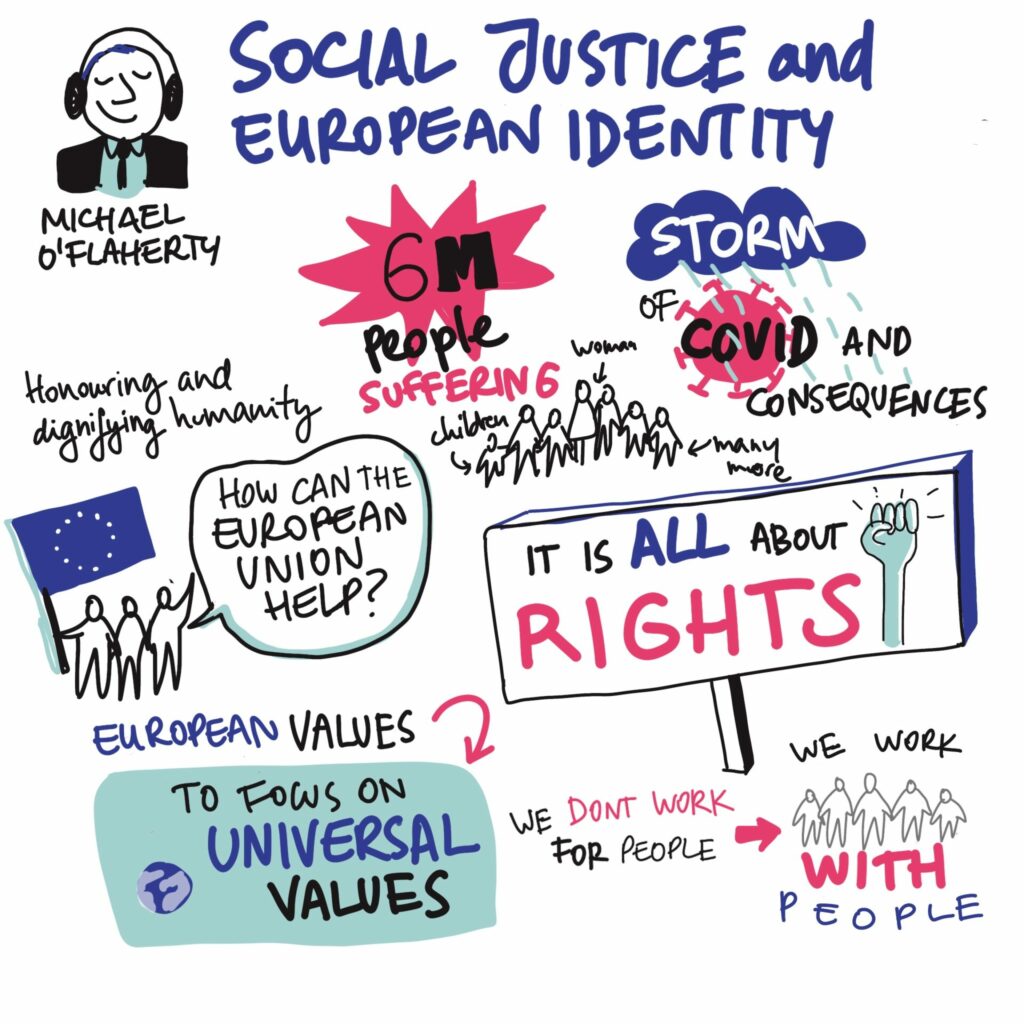 SOCIAL JUSTICE and
EUROPEAN IDENTITY
MICHAEL
O'FLAHERTY
6M
People
SUFFERING
woman
children
many
more
STORM
OF
COVID AND
CONSEQUENCES
Honouring and
dignifying humanity
HOW CAN THE
EUROPEAN
UNION
HELP?
IT IS ALL ABOUT
RIGHTS
EUROPEAN VALUES
TO FOCUS ON
UNIVERSAL
VALUES
WE DONT WORK
FOR PEOPLE
WE WORK
WITH
PEOPLE